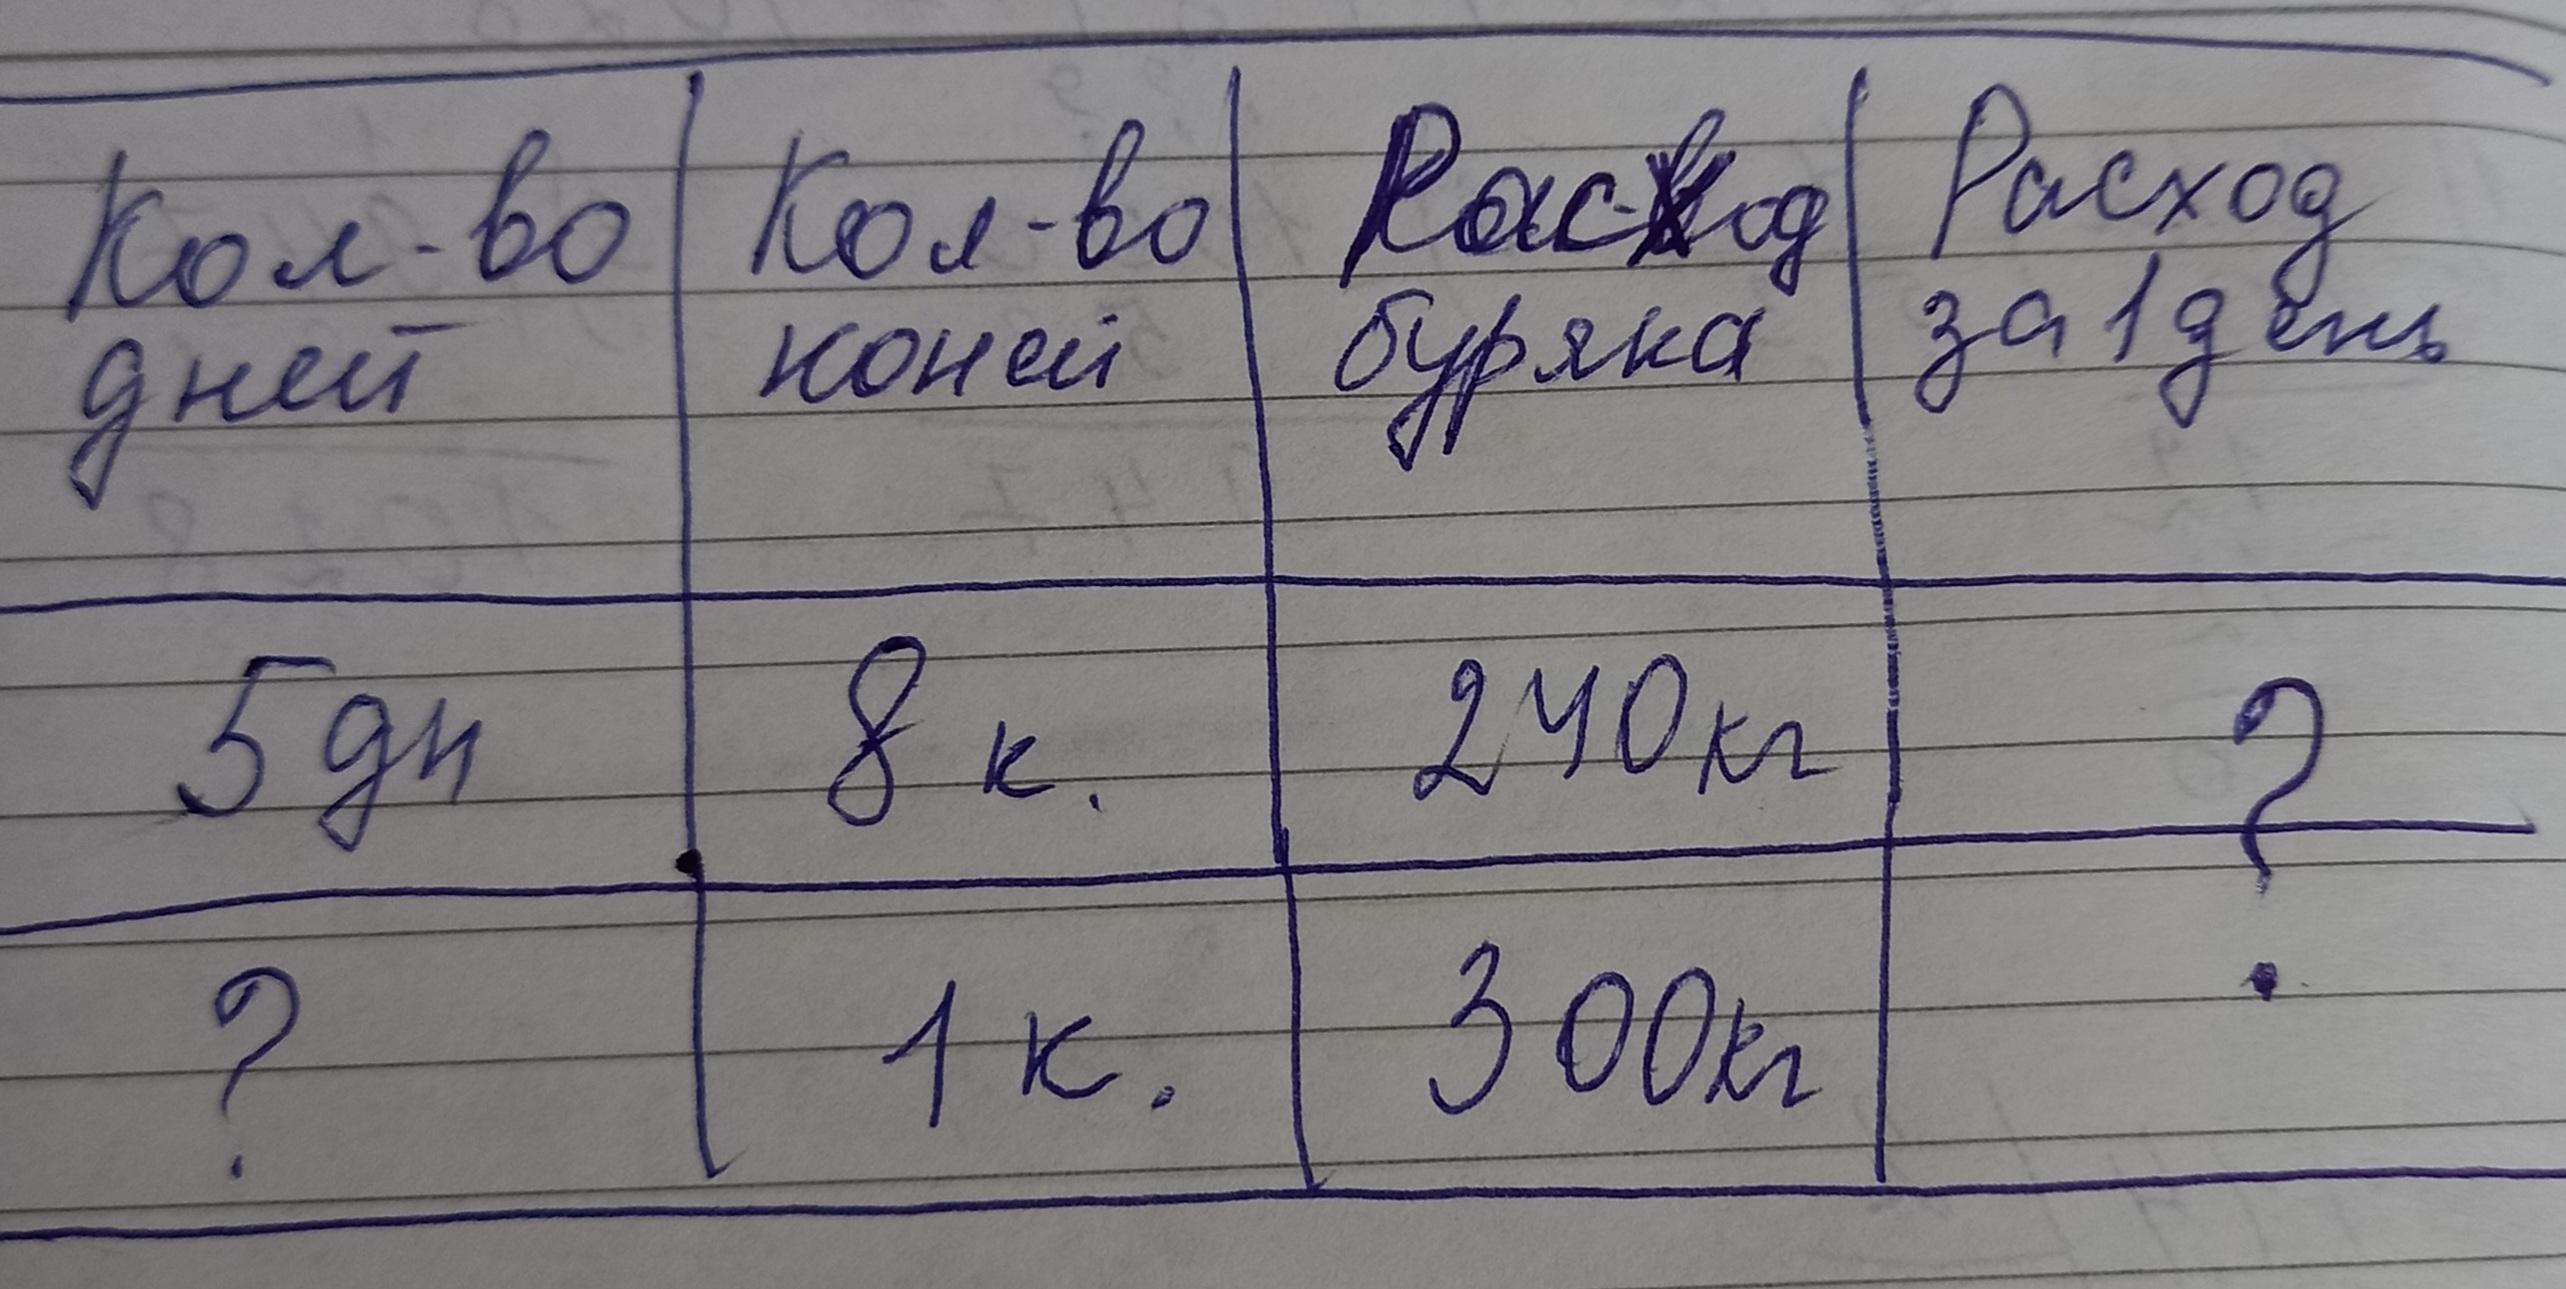 Кол-во дней
Кол-во коней
Расход буряка
Расход за 1 день
5 дн
8 к.
240 кг
?
?
1 к.
300 кг